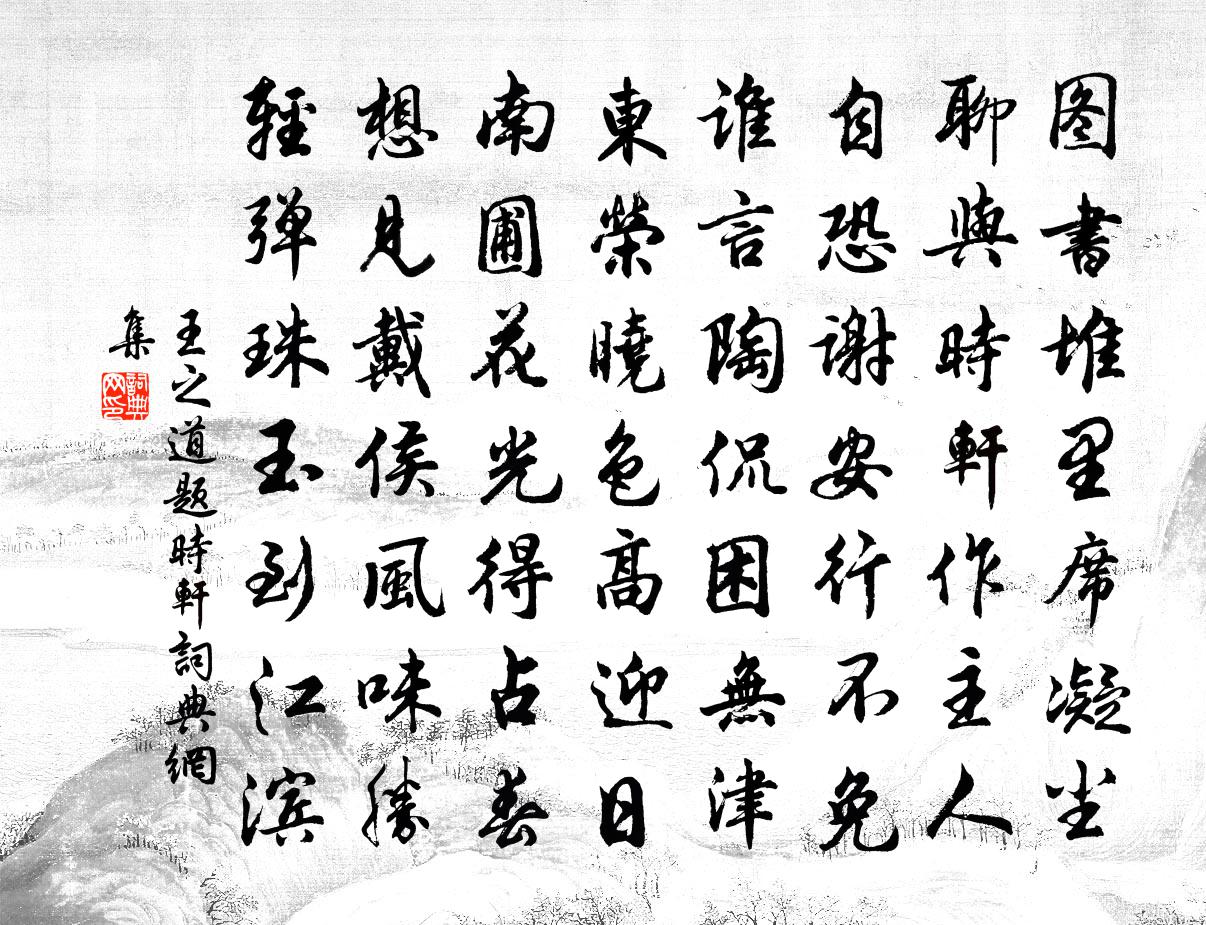 图書堆里席凝尘
聊與時軒作主人
自恐謝安行不免
谁言陶侃困無津
東榮曉色高迎日
南圃花光得占春
想見戴侯風味勝
輕弹珠玉到江滨
王之道题時軒詞典網
集
詞典网印